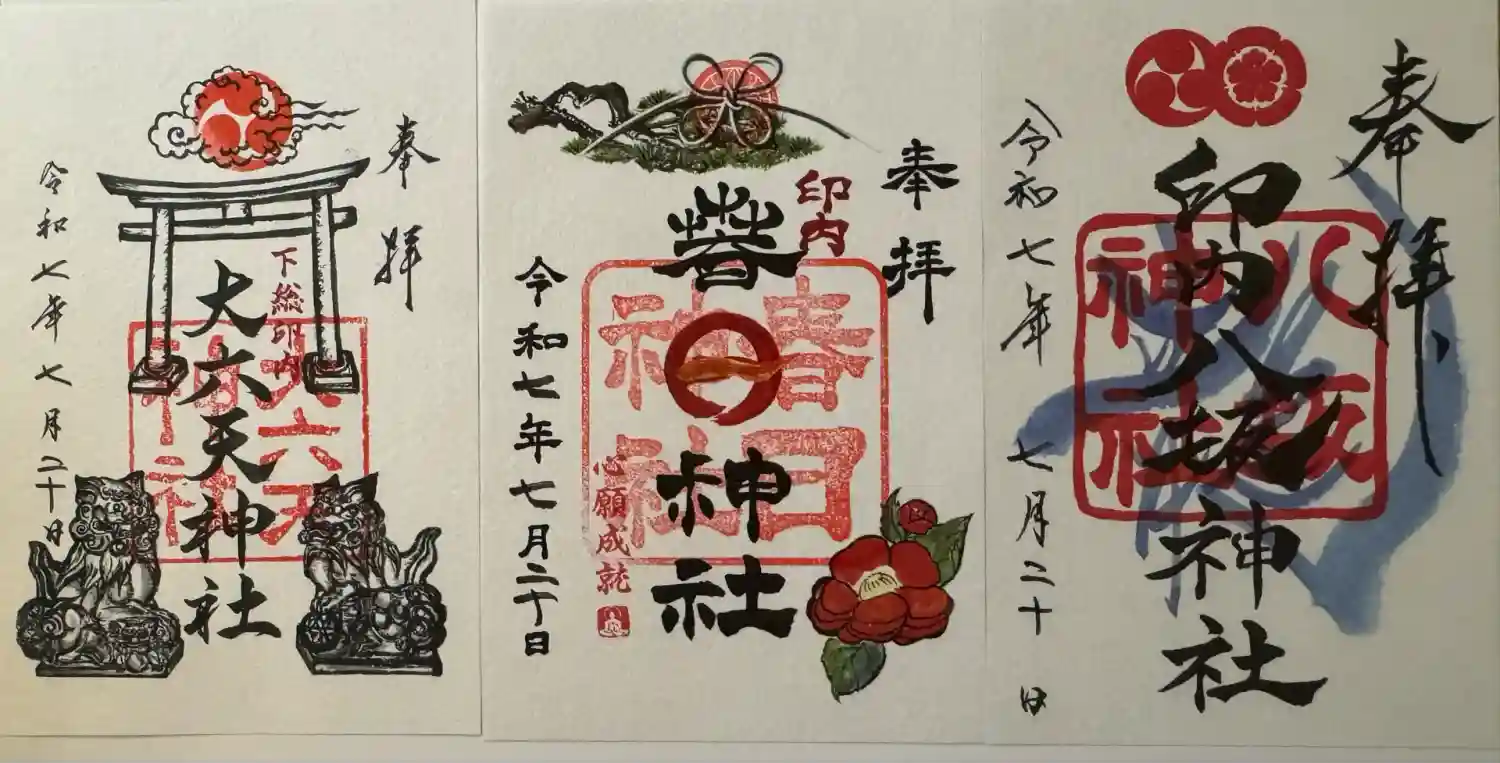 奉拝
下総印内
大六天神社
大六天
神社
令和七年七月二十日
奉拝
印内
春日神社
春日
神社
心願成就
令和七年七月二十日
奉拝
印内八坂神社
八坂
神社
令和七年七月二十日